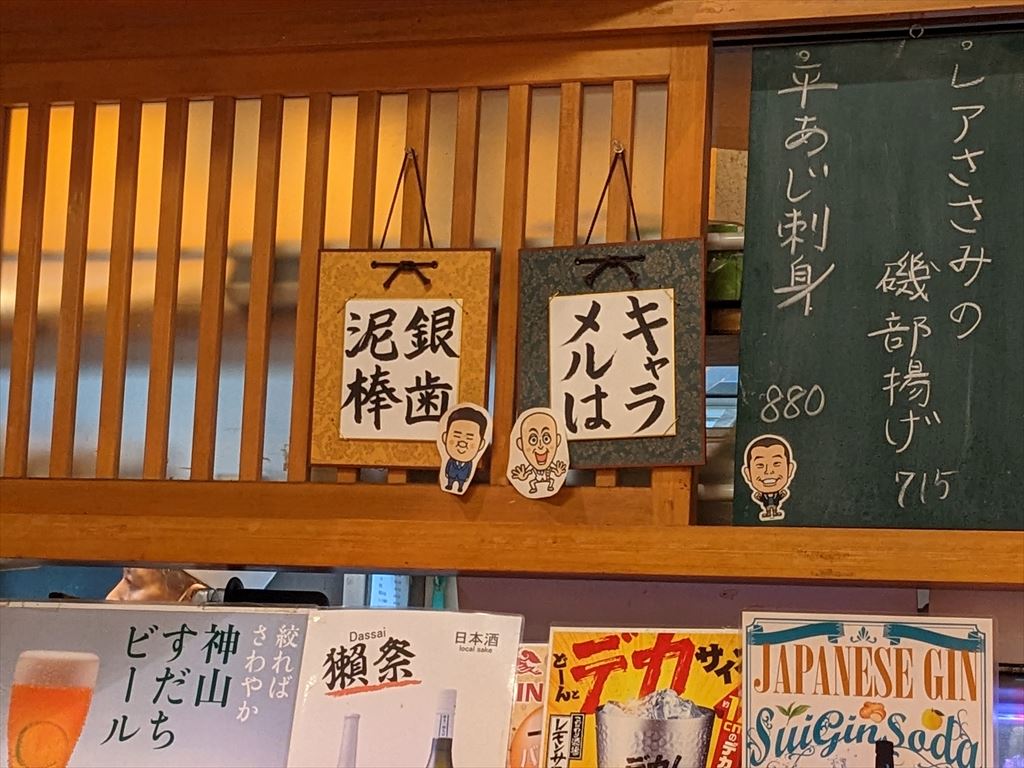 キャラ
メルは
銀歯
泥棒
・レアささみの
磯部揚げ
715
・平あじ刺身
880
絞れば
さわやか
神山
すだち
ビール
Dassai
獺祭
日本酒
local sake
どーんと
デカ
サイ
レモンサ
JAPANESE GIN
SuiGinSoda